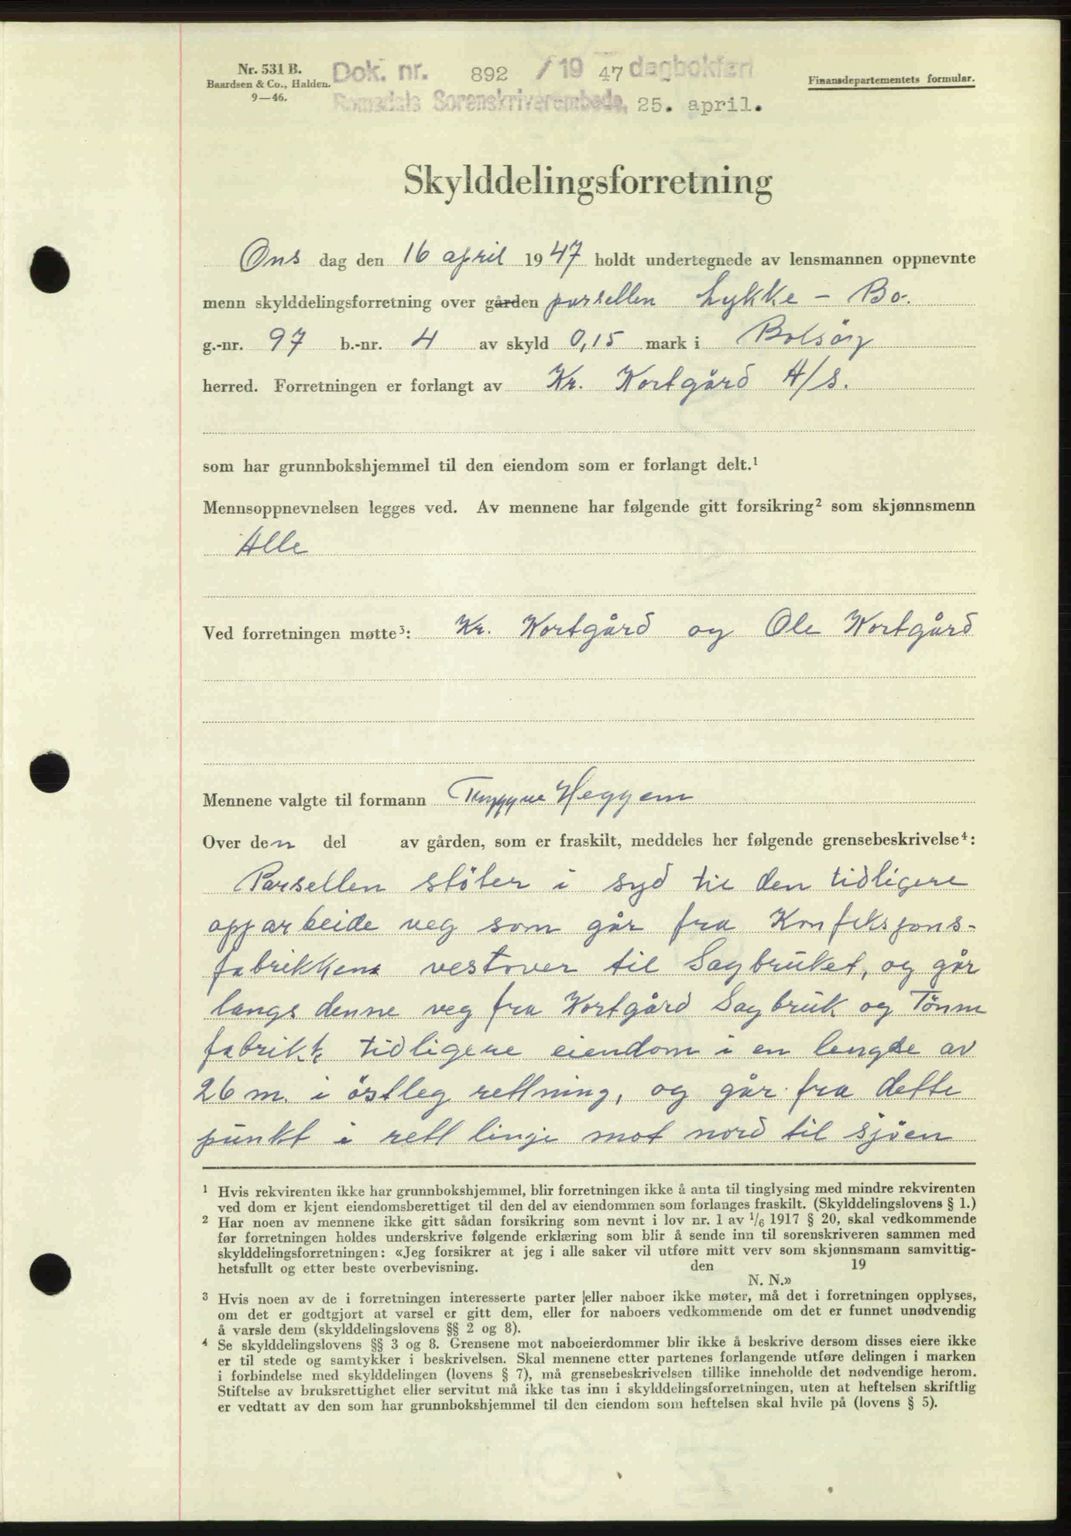 Nr. 531 B.
Baardsen & Co., Halden.
9—46.
Dok. nr. 892 / 19 47 dagbokført
Romsdals Sorenskriverembede, 25. april.
Finansdepartementets formular.
Skylddelingsforretning
Ons dag den 16 april 1947 holdt undertegnede av lensmannen oppnevnte
menn skylddelingsforretning over gården parsellen Lykke - Bo.
g.-nr. 97 b.-nr. 4 av skyld 0,15 mark i Bolsøy
herred. Forretningen er forlangt av Kr. Kortgård A/S.
som har grunnbokshjemmel til den eiendom som er forlangt delt.¹
Mennsoppnevnelsen legges ved. Av mennene har følgende gitt forsikring² som skjønnsmenn
Alle
Ved forretningen møtte³: Kr. Kortgård og Ole Kortgård
Mennene valgte til formann Tryggve Heggem
Over den del av gården, som er fraskilt, meddeles her følgende grensebeskrivelse⁴:
Parsellen stöter i syd til den tidligere
opparbeide veg som går fra Konfeksjons-
fabrikken vestover til Sagbruket, og går
langs denne veg fra Kortgård Sagbruk og Tönne
fabrikk tidligere eiendom i en lengde av
26 m. i östleg rettning, og går fra dette
punkt i rett linje mot nord til sjöen
¹ Hvis rekvirenten ikke har grunnbokshjemmel, blir forretningen ikke å anta til tinglysing med mindre rekvirenten
ved dom er kjent eiendomsberettiget til den del av eiendommen som forlanges fraskilt. (Skylddelingslovens § 1.)
² Har noen av mennene ikke gitt sådan forsikring som nevnt i lov nr. 1 av 1/6 1917 § 20, skal vedkommende
før forretningen holdes underskrive følgende erklæring som blir å sende inn til sorenskriveren sammen med
skylddelingsforretningen: «Jeg forsikrer at jeg i alle saker vil utføre mitt verv som skjønnsmann samvittig-
hetsfullt og etter beste overbevisning. den 19
N. N.»
³ Hvis noen av de i forretningen interesserte parter eller naboer ikke møter, må det i forretningen opplyses,
om det er godtgjort at varsel er gitt dem, eller for naboers vedkommende om det er funnet unødvendig
å varsle dem (skylddelingslovens §§ 2 og 8).
⁴ Se skylddelingslovens §§ 3 og 8. Grensene mot naboeierdommer blir ikke å beskrive dersom disses eiere ikke
er til stede og samtykker i beskrivelsen. Skal mennene etter partenes forlangende utføre delingen i marken
i forbindelse med skylddelingen (lovens § 7), må grensebeskrivelsen tillike inneholde det nødvendige herom.
Stiftelse av bruksrettighet eller servitut må ikke tas inn i skylddelingsforretningen, uten at heftelsen skriftlig
er vedtatt av den som har grunnbokshjemmel til den eiendom som heftelsen skal hvile på (lovens § 5).